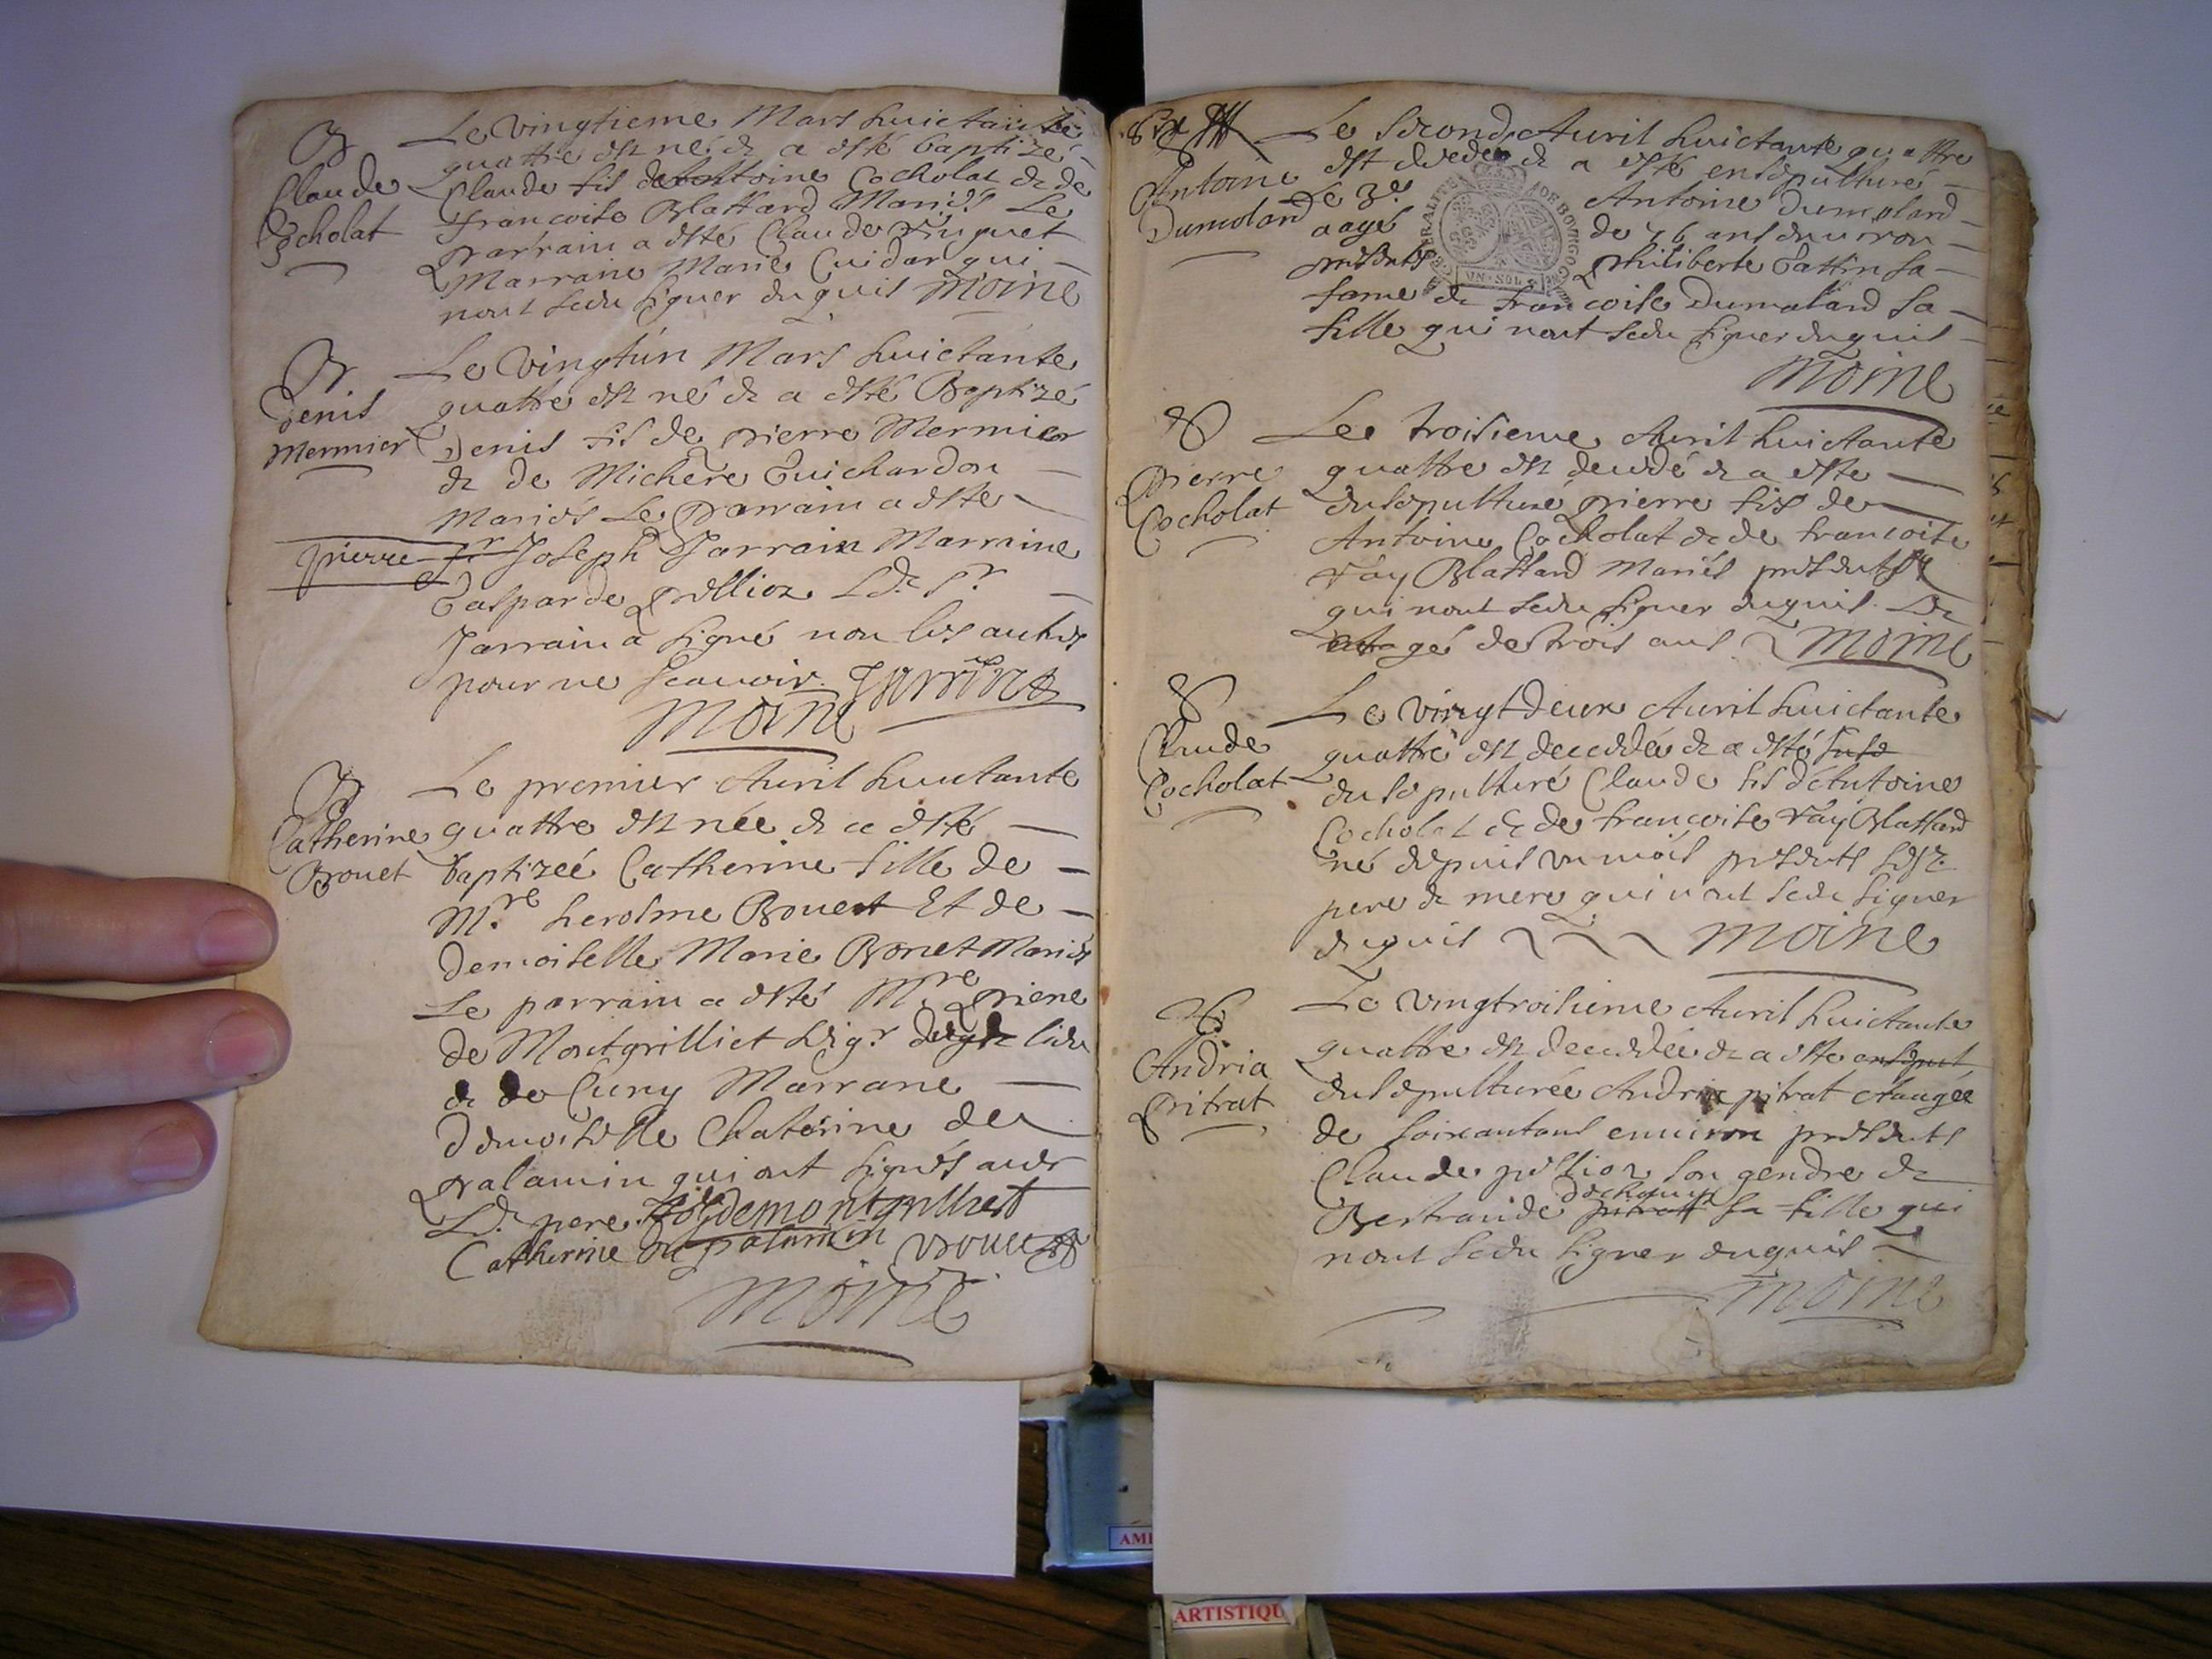 B
Claude
Cocholat
Le vingtieme Mars huictante
quattre est né & a esté baptizé
Claude fils de Antoine Cocholat & de
francoise Blattard Mariés Le
parrain a esté Claude
Marraine Marie qui
nont sceu signer enquis Moine
B
Denis
Mermier
Le vingtun Mars huictante
quattre est né & a esté Baptizé
Denis fils de pierre Mermier
& de Michere Guichardon
Mariés Le parrain a esté
pierre Sr Joseph Jarrain Marraine
Gasparde pellion Ld. Sr
Jarrain a signé non les autres
pour ne scauoir Jarrin
Moine
B
Catherine
Bouet
Le premier Auril huictante
quattre est née & a esté
baptizeé Catherine fille de
Mre herosme Bouet Et de
Demoiselle Marie Bonet Mariés
Le parrain a esté Mre piere
de Montgrilliet seigr lieu
& de Cuny Marrane
Demoiselle Chaterine de
palamin qui ont signés auec
Ld. pere demontgrilliet
Catherine de palamin Bouet
Moine
Antoine
Dumolard
Le Second Auril huictante quattre
est decedé & a esté ensepulturé
Le 3e Antoine Dumolard
aagé de 76 ans enuiron
presents philiberte Gattin sa
fame & francoise Dumolard sa
fille qui nont sceu signer enquis
Moine
GENERALITE DE BOURGOGNE
UN SOL
pierre
Cocholat
Lee troisieme Auril huictante
quattre est decedé & a esté
ensepulturé pierre fils de
Antoine Cocholat & de francoise
ray Blattard Mariés presents
qui nont sceu signer enquis Le
agé de trois ans Moine
Claude
Cocholat
Le vingtdeux Auril huictante
quattre est decedé & a esté
ensepulturé Claude fils d'Antoine
Cocholat & de francoise ray Blattard
né depuis un mois presents
pere & mere qui nont sceu signer
enquis Moine
Andria
pitrat
Le vingtroisieme Auril huictante
quattre est decedée & a esté ensepul
ensepulturée Andria pitrat aagée
de soixantans enuiron presents
Claude pellion son gendre &
Bertrande pitratt sa fille qui
nont sceu signer enquis
Moine
ARTISTIQU